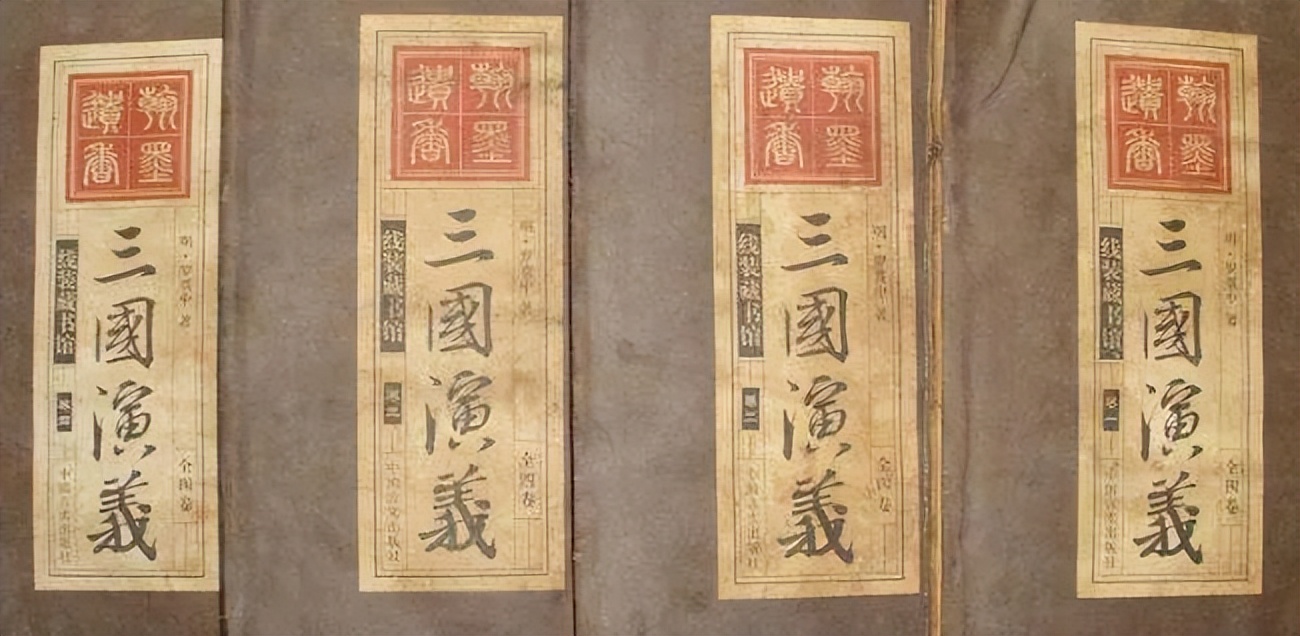 翰墨
遺香
明·罗贯中 著
全四卷
三國演義
线装藏书馆
卷四
翰墨
遺香
明·罗贯中 著
全四卷
三國演義
线装藏书馆
翰墨
遺香
明·罗贯中 著
全四卷
三國演義
线装藏书馆
卷二
翰墨
遺香
明·罗贯中 著
全四卷
三國演義
线装藏书馆
卷一